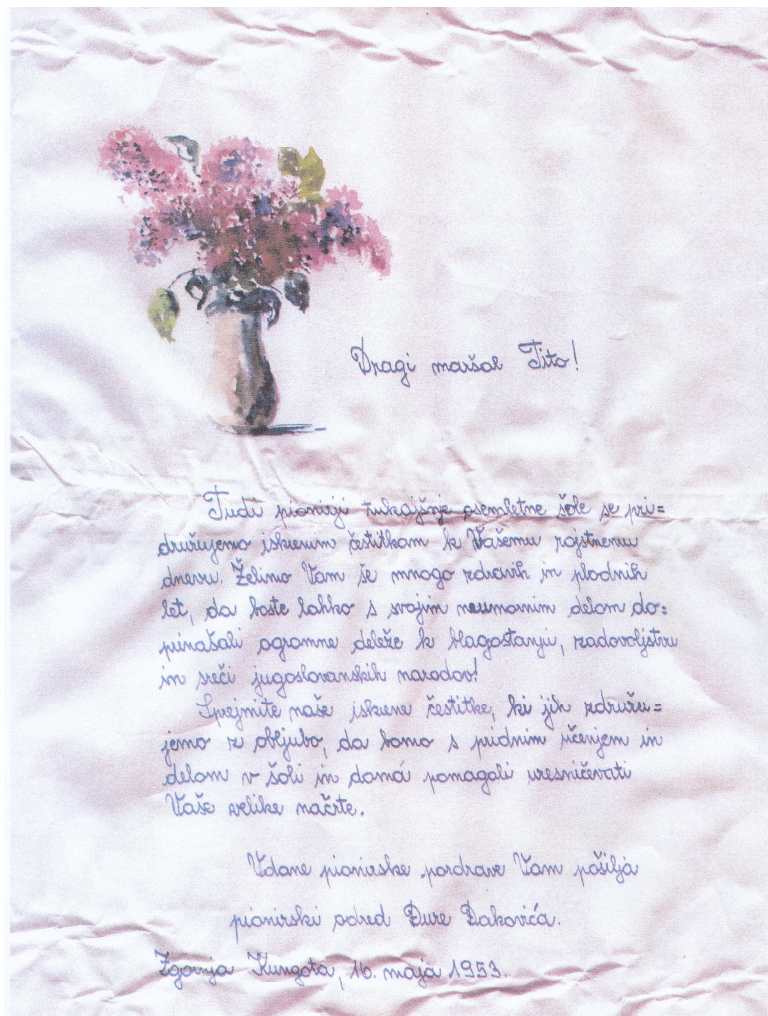 Dragi maršal Tito!
Tudi pionirji tukajšnje osemletne šole se pri=
družujemo iskrenim čestitkam k Vašemu rojstnemu
dnevu. Želimo Vam še mnogo zdravih in plodnih
let, da boste lahko s svojim neumornim delom do=
prinašali ogromne deleže k blagostanju, zadovoljstvu
in sreči jugoslovanskih narodov!
Sprejmite naše iskrene čestitke, ki jih združu=
jemo z obljubo, da bomo s pridnim učenjem in
delom v šoli in doma pomagali uresničevati
Vaše velike načrte.
Vdane pionirske pozdrave Vam pošilja
pionirski odred Đure Đakovića.
Zgornja Kungota, 16. maja 1953.